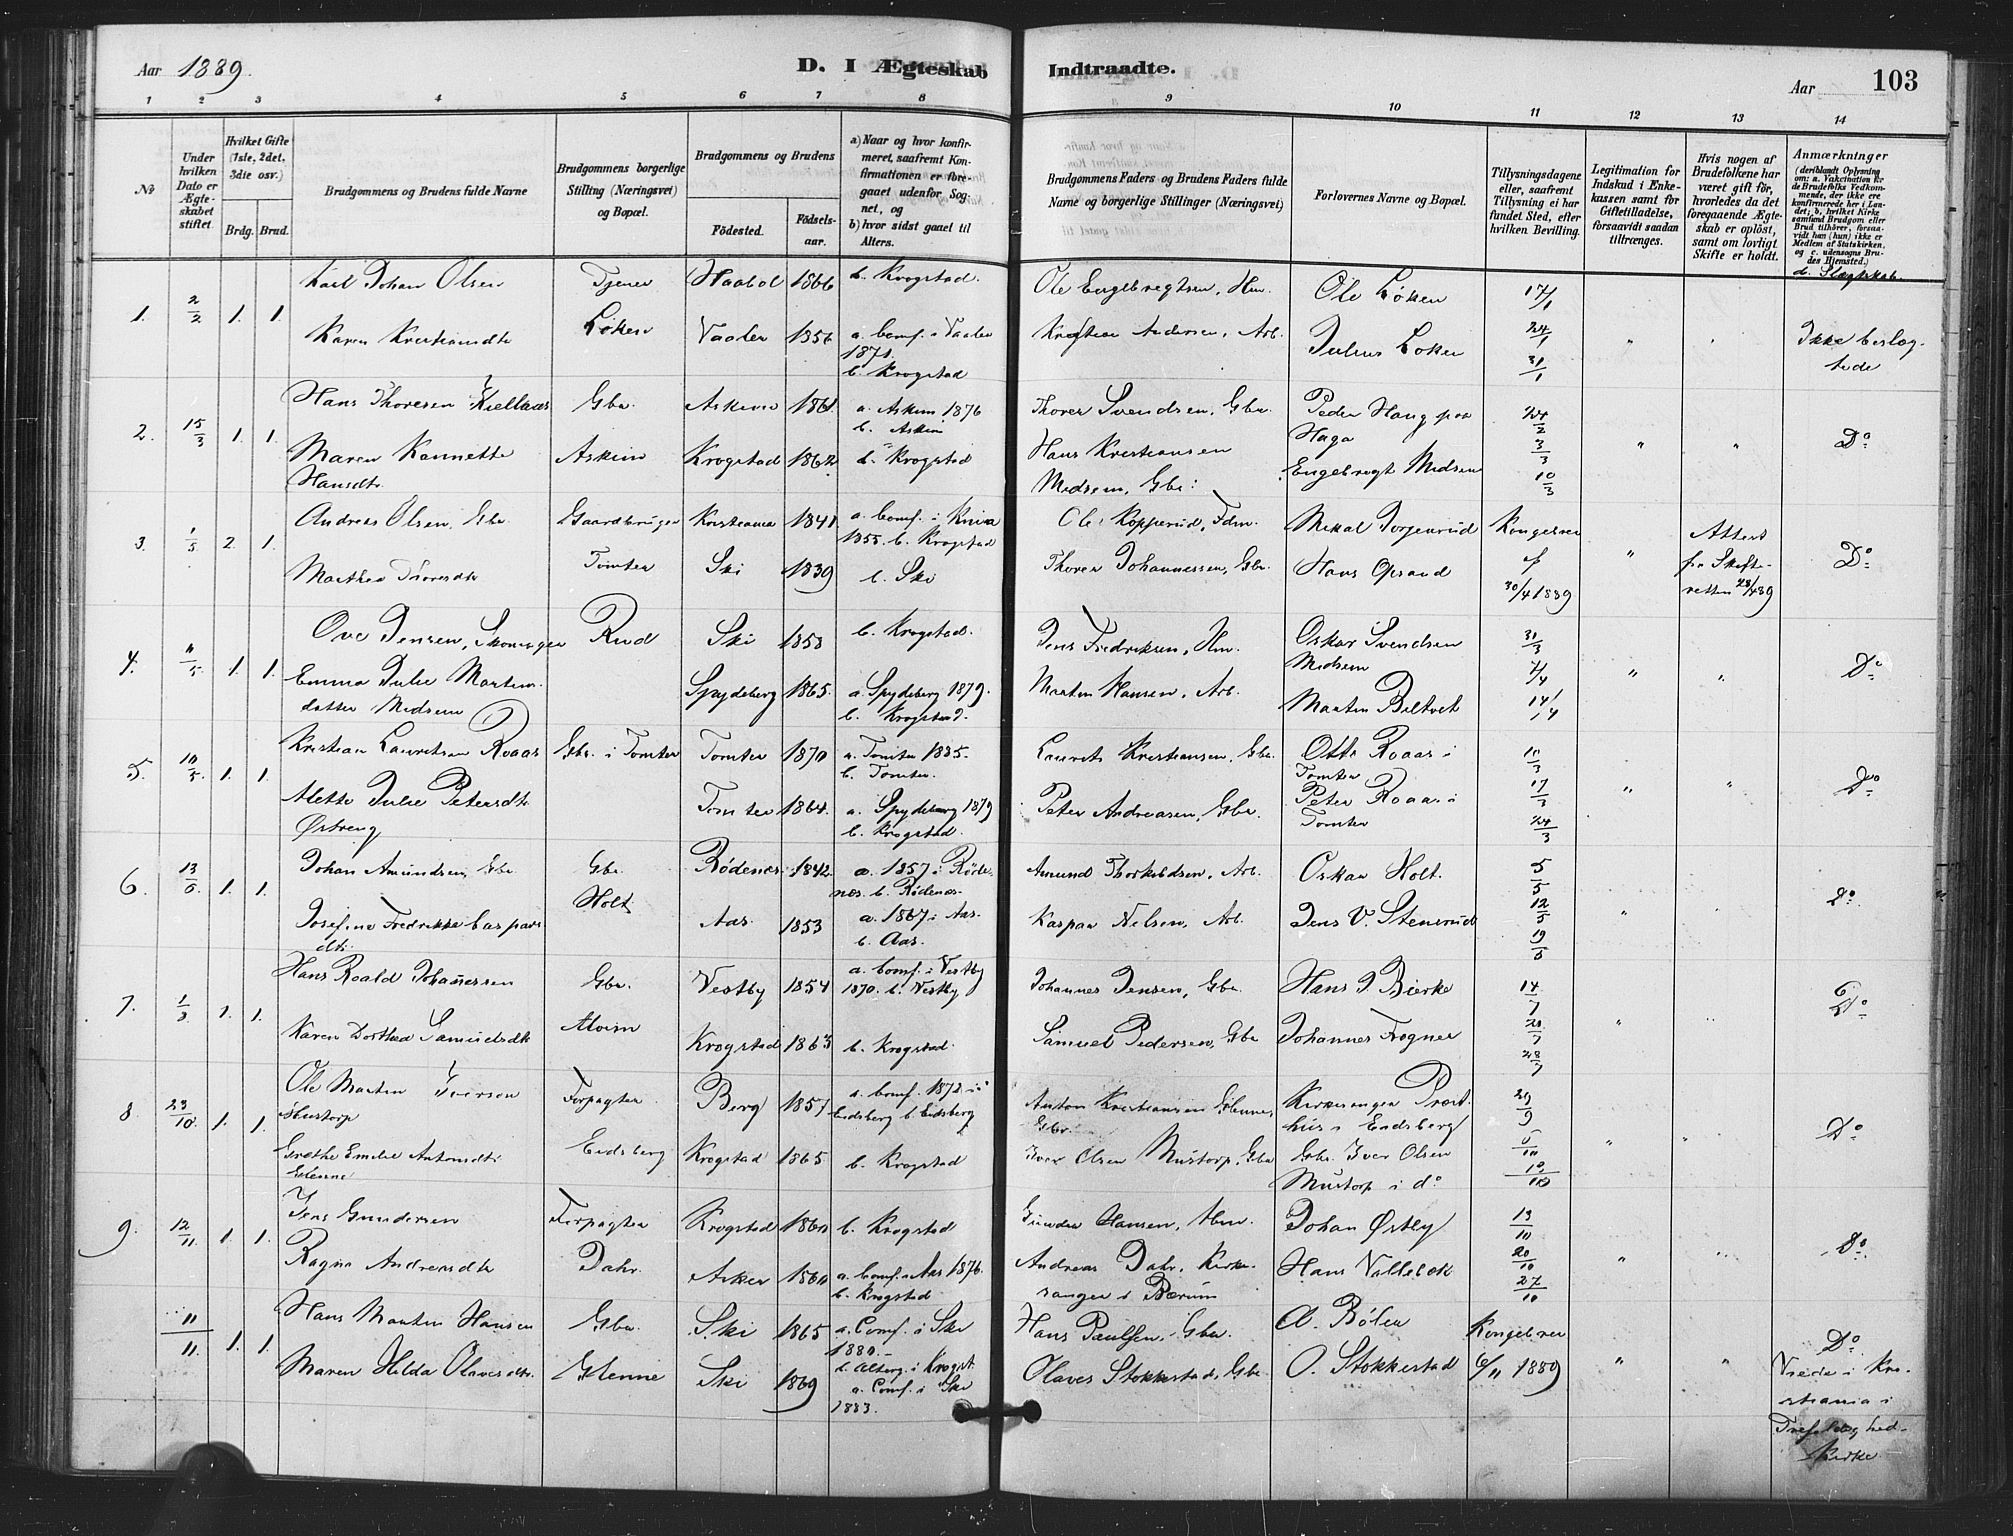 Aar 1889.
D. I Ægteskab Indtraadte.
Aar
103
1 2 3 4 5 6 7 8 9 10 11 12 13 14
No
Under hvilken Dato er Ægteskabet stiftet
Hvilket Gifte (1ste, 2det, 3die osv.)
Brdg. Brud.
Brudgommens og Brudens fulde Navne
Brudgommens borgerlige Stilling (Næringsvei) og Bopæl.
Brudgommens og Brudens
Fødested.
Fødselsaar.
a) Naar og hvor konfirmeret, saafremt Konfirmationen er foregaaet udenfor Sognet, og
b) hvor sidst gaaet til Alters.
Brudgommens Faders og Brudens Faders fulde Navne og borgerlige Stillinger (Næringsvei)
Forlovernes Navne og Bopæl.
Tillysningsdagene eller, saafremt Tillysning ei har fundet Sted, efter hvilken Bevilling.
Legitimation for Indskud i Enkekassen samt for Giftetilladelse, forsaavidt saadan tiltrænges.
Hvis nogen af Brudefolkene har været gift før, hvorledes da det foregaaende Ægteskab er opløst, samt om lovligt Skifte er holdt.
Anmærkninger
(deriblandt Oplysning om: a. Vakcination for de Brudefolks Vedkommende, der ikke ere konfirmerede her i Landet; b. hvilket Kirkesamfund Brudgom eller Brud tilhører, forsaavidt han (hun) ikke er Medlem af Statskirken, og c. udensogns Brudes Hjemsted.)
d. Slægtskab.
1. 2/2 1. 1. Karl Johan Olsen Tjener Haabøl 1866 b. Krogstad. Ole Engebregtsen, Hm. Ole Løken 17/1
Karen Kristiansdtr Løken Vaaler 1856 a. Comf. i Vaaler 1871. b. Krogstad Kristian Andersen, Arb. Julius Løken 24/1 31/1 " " Ikke beslægtede
2. 15/3 1. 1. Hans Thoresen Kjellaas Gbr. Askim 1861. a. Askim 1876 b. Askim Thorer Svendsen, Gbr. Peder Haug paa Haga 24/2
Maren Hansdtr. Askim Krogstad 1862 b. Krogstad Hans Kristiansen Midsem, Gbr. Engebregt Midsem 3/3 10/3 " " Do
3. 1/5 2. 1. Andreas Olsen, Gbr. Gaardbruger Kristiania 1841 a. Comf. i 1855. b. Krogstad Ole Kopperud, Fdm. Mikal Kongebrev
Marthea Thoresdtr Tomter Ski 1839 b. Ski Thorer Johannessen, Gbr. Hans Opsand af 30/4 1889 " Attest fra Skifteretten 23/4 89 Do
4. 11/5 1. 1. Ove Jensen, Skomager Rud Ski 1858 b. Krogstad. Jens Fredriksen, Hm. Oskar Svendsen Midsem 31/3
Emma Julie Martinsdatter Midsem Spydeberg 1865. a. Spydeberg 1879. b. Krogstad. Martin Hansen, Arb. Martin Biltvet 7/4 14/4 " " Do
5. 10/5. 1. 1. Kristian Lauritsen Roaas Gbr. i Tomter Tomter 1870 a. Tomter 1885. b. Tomter. Laurits Kristiansen, Gbr. Otto Roaas i Tomter 10/3
Alette Julie Petersdtr Østreng Tomter 1864. a. Spydeberg 1879 b. Krogstad. Peter Andreasen, Gbr. Peter Roaas i Tomter 17/3 24/3 " " Do
6. 13/6. 1. 1. Johan Amundsen, Gbr. Gbr. Holt Rødenæs 1842. a. 1857 i Rødenæs. b. Rødenæs. Amund Thorkildsen, Arb. Oskar Holt. 5/5
Josefine Fredrikke Caspersdtr. Aas 1853 a. 1867 i Aas. b. Aas. Kaspar Nilsen, Arb. Jens V. Stenrud 12/5 19/5 " " Do
7. 1/8 1. 1. Hans Roald Johannessen Gbr. Vestby 1854 a. Comf. i Vestby 1870. b. Vestby Johannes Jensen, Gbr. Hans J. Bjerke 14/7
Karen Dorthea Samuelsdtr Alvim Krogstad 1863 b. Krogstad. Samuel Pedersen, Gbr Johannes Fogner 28/7 " " Do
8. 23/10. 1. 1. Ole Martin Iverson Mustorp Forpagter Berg 1857 a. Comf. 1872 i Eidsberg b. Eidsberg Anton Kristiansen Glenne, Gbr. Kirkesanger Præsthus i Eidsberg 29/9
Grethe Emilie Antonsdtr Glenne Eidsberg Krogstad 1865 b. Krogstad Iver Olsen Mustorp, Gbr Gbr. Iver Olsen Mustorp i do 6/10 " " Do
9. 12/11. 1. 1. Jens Gundersen Forpagter Krogstad 1860 b. Krogstad Gunder Hansen, Hm. Johan Østby 13/10
Ragna Andreasdtr Dahr. Asker 1860 a. Comf. i Aas 1876. b. Krogstad. Andreas Dahr, Kirkesanger i Bærum Hans Vollebæk 20/10 27/10 " " Do
11/11. 1. 1. Hans Martin Hansen Gbr. Ski 1865 a. Comf. i Ski 1880. Hans Paulsen, Gbr. A. Bøler Kongebrev
Maren Hilda Olavesdtr. Glenne Ski 1869 b. Alterg. i Krogst. a. Comf. i Ski 1883. Olaves Stokkestad, Gbr O. Stokkestad 6/11 1889 " " Do
Viede i Kristiania i Trefoldighedskirke